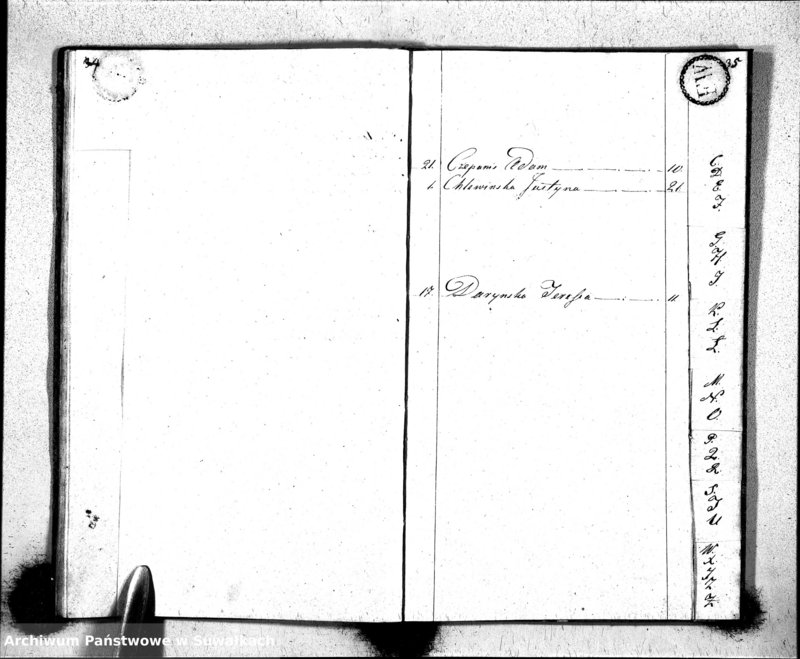 34
35
EW
21. Czepanis Adam 10.
1. Chlewinska Justyna 21.
17. Darynska Teressa 11.
C.
D.
E.
F.
G.
H.
I.
K.
L.
Ł.
M.
N.
O.
P.
Q.
R.
S.
T.
U
W.
Archiwum Państwowe w Suwałkach